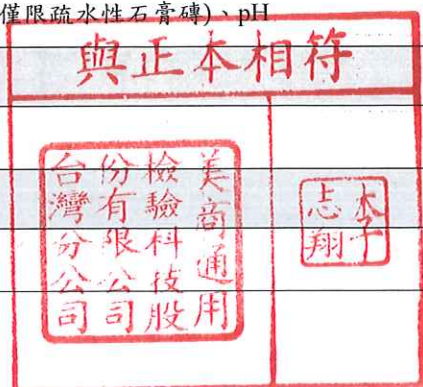 僅限疏水性石膏磚)、pH
與正本相符
美商通用
檢驗科技股
份有限公司
台灣分公司
李志翔